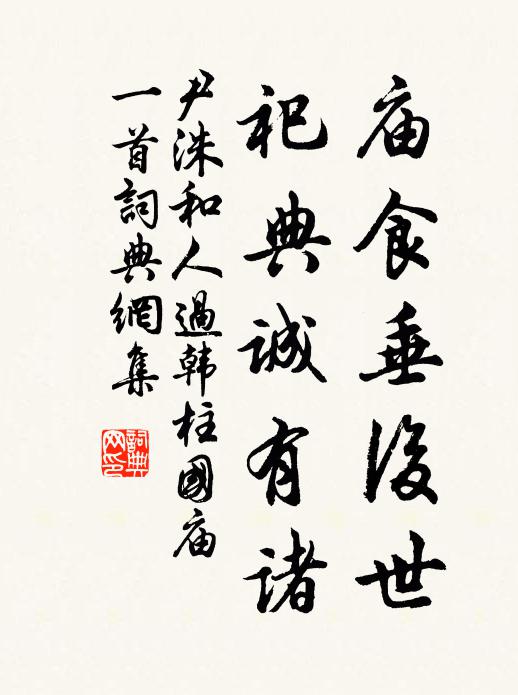 庙食垂後世
祀典誠有诸
尹洙和人過韩柱國庙
一首詞典網集
詞典
网印